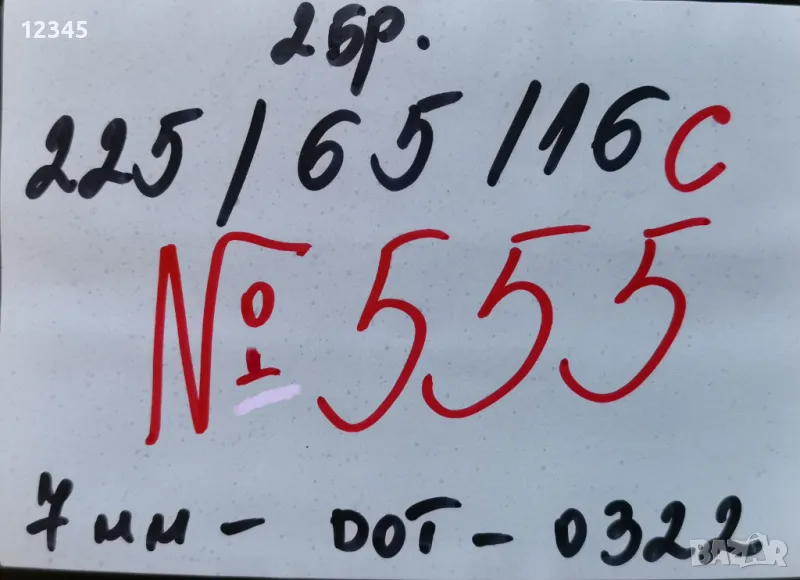 12345
2бр.
225/65/16C
№ 555
7мм - DOT - 0322
BAZAR